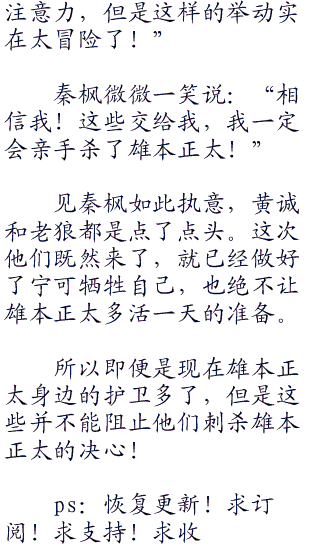 注意力，但是这样的举动实
在太冒险了！”
秦枫微微一笑说：“相
信我！这些交给我，我一定
会亲手杀了雄本正太！”
见秦枫如此执意，黄诚
和老狼都是点了点头。这次
他们既然来了，就已经做好
了宁可牺牲自己，也绝不让
雄本正太多活一天的准备。
所以即便是现在雄本正
太身边的护卫多了，但是这
些并不能阻止他们刺杀雄本
正太的决心！
ps：恢复更新！求订
阅！求支持！求收